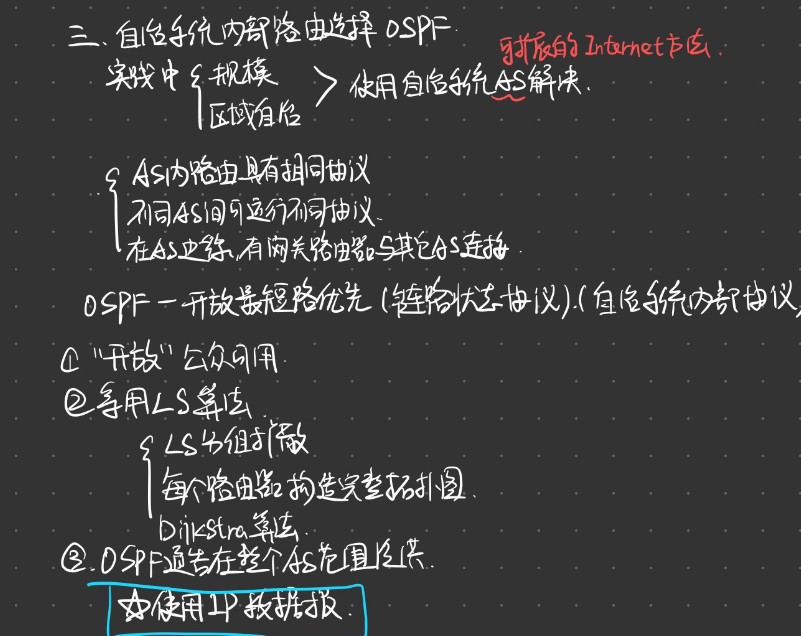 三、自治系统内部路由选择 OSPF.
可扩展的Internet方法.
实践中 { 规模
区域自治 > 使用自治系统AS解决.
{ AS内路由具有相同协议
不同AS间可运行不同协议.
在AS边缘,有网关路由器与其它AS连接.
OSPF — 开放最短路优先 (链路状态协议).(自治系统内部协议)
① "开放" 公众可用.
② 采用LS算法.
{ LS分组扩散
每个路由器构造完整拓扑图.
Dijkstra算法.
③.OSPF通告在整个AS范围泛洪.
☆使用IP数据报.